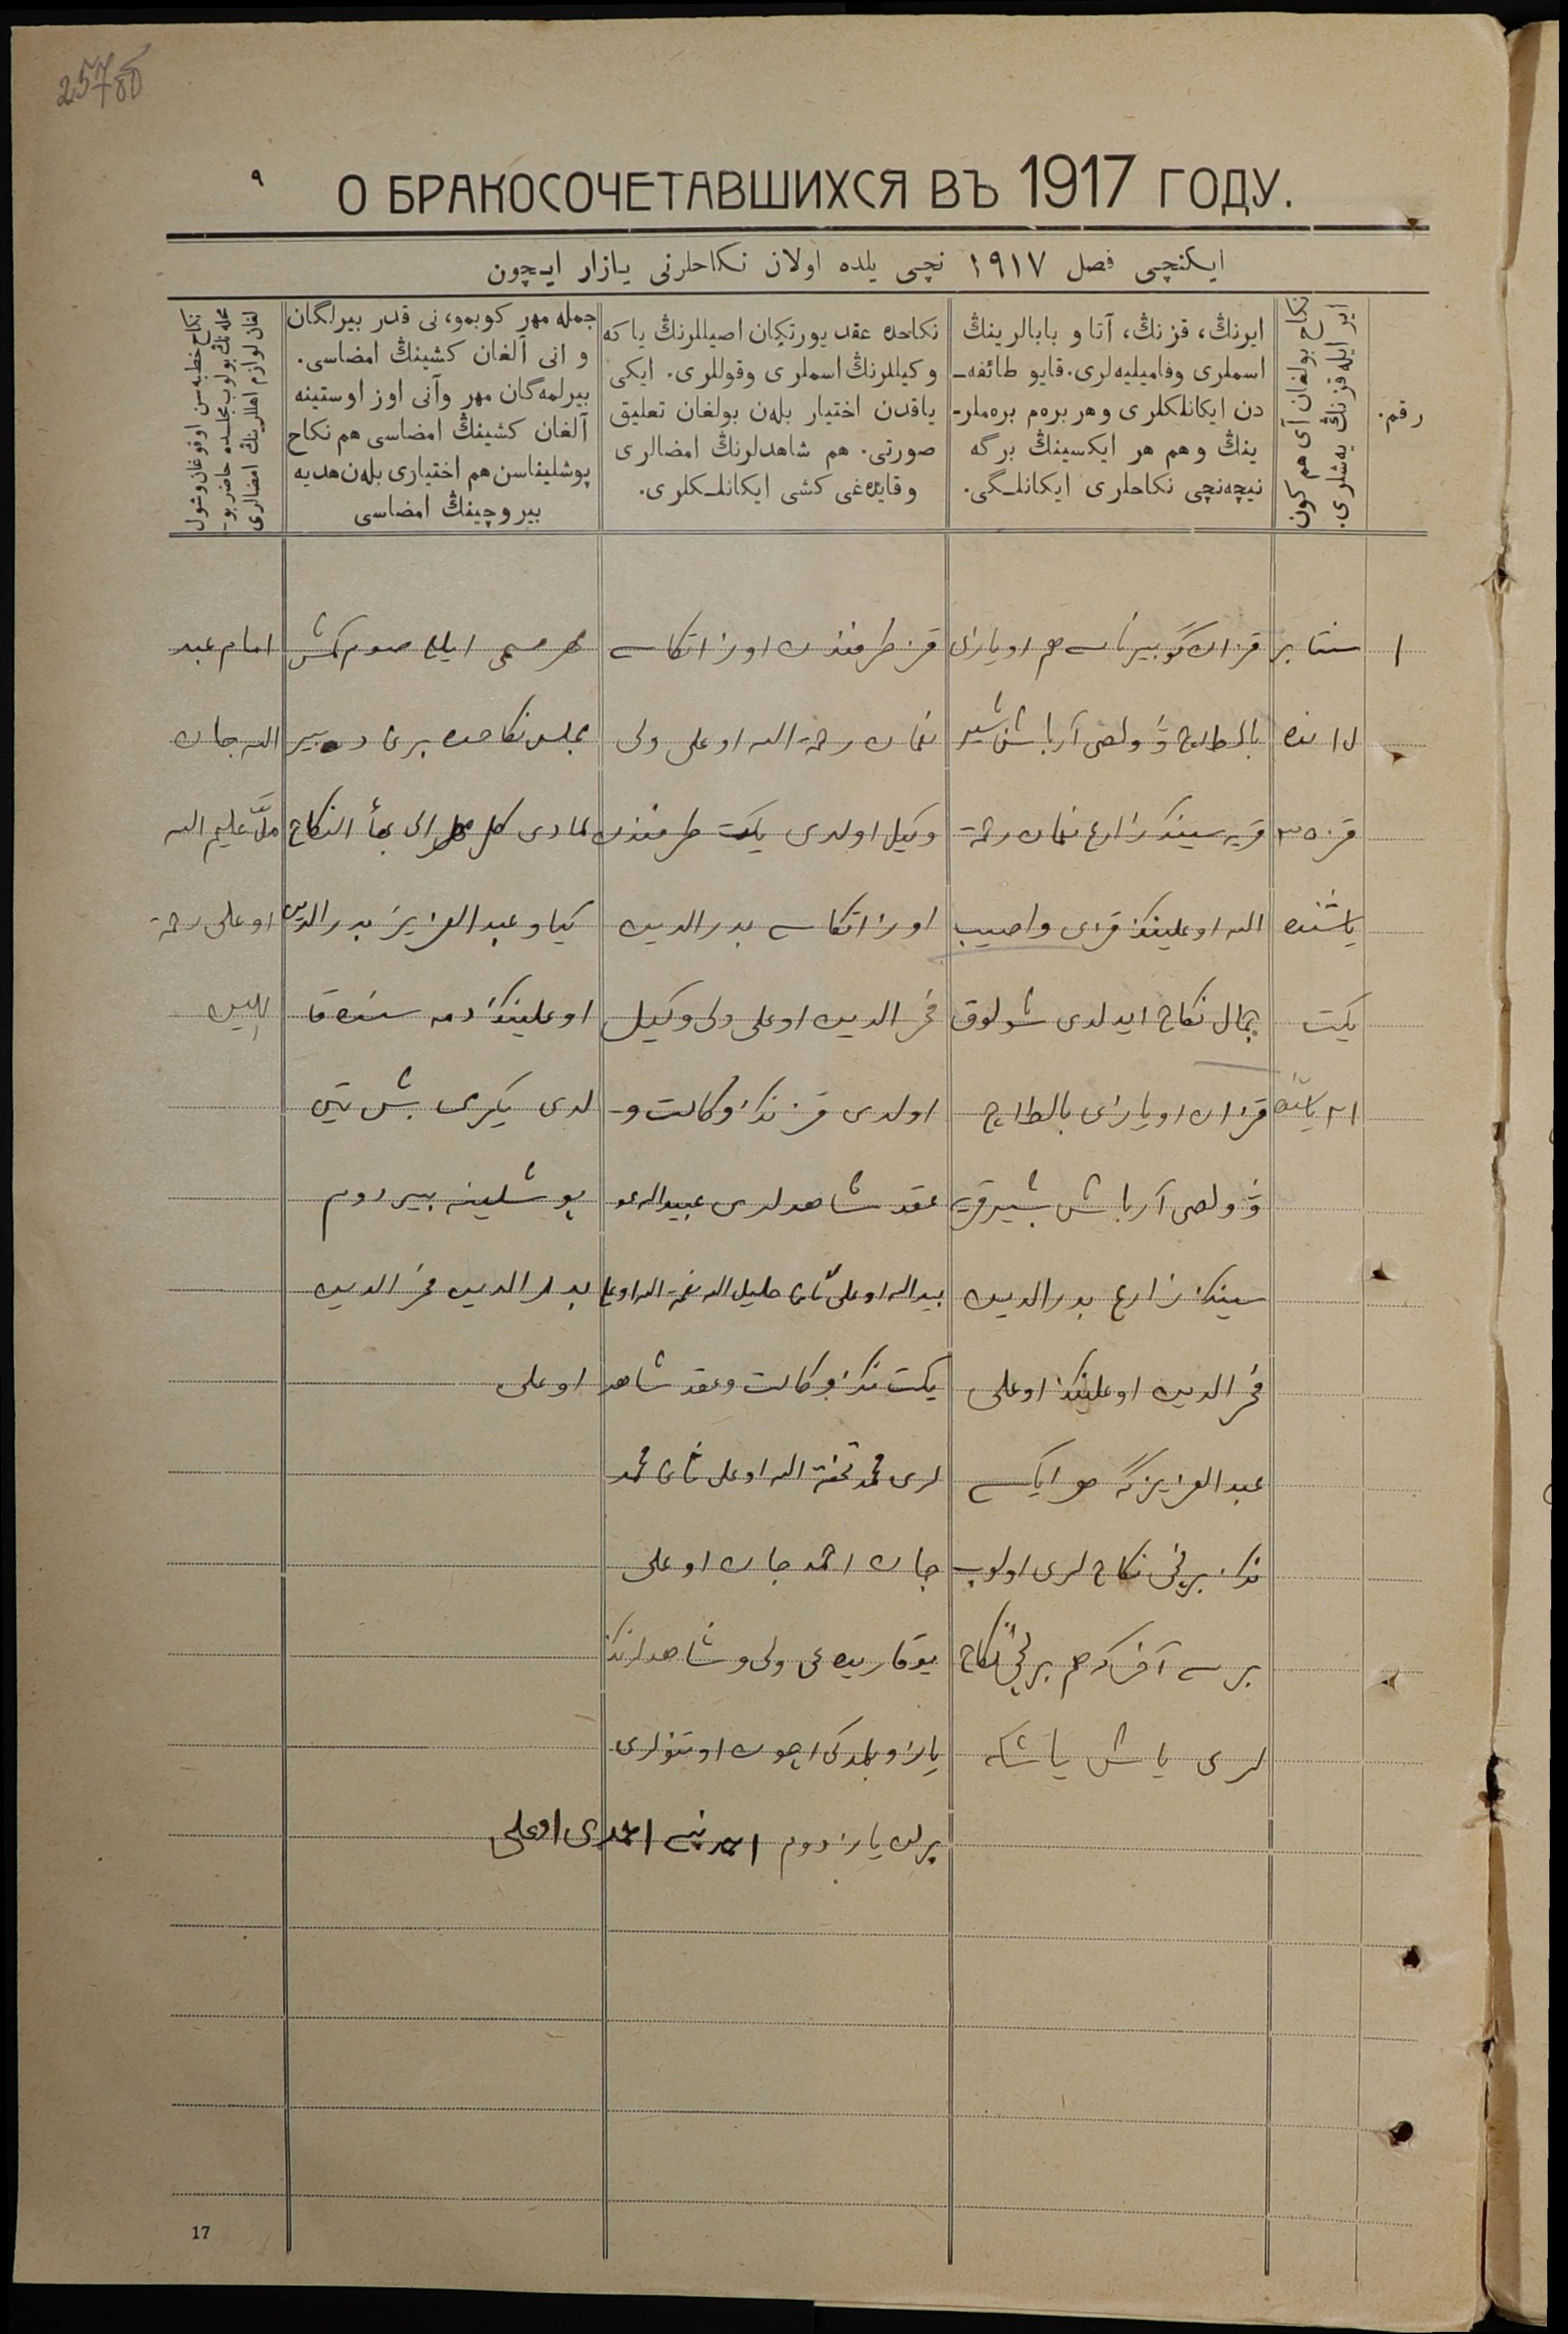 257об
٩
О БРАКОСОЧЕТАВШИХСЯ ВЪ 1917 ГОДУ.
ایکنچی فصل ١٩١٧ نچی یلده اولان نکاحلرنی یازار ایچون
رقم.
نکاح بولغان آی هم کون
ایر ایله قزنڭ یه‌شلری.
ایرنڭ، قزنڭ، آتا و بابالرینڭ
اسملری وفامیلیه‌لری. قایو طائفه‌ـ
دن ایکانلکلری و هر بره‌م بره‌ملرـ
ینڭ و هم هر ایکسینڭ برگه
نیچه‌نچی نکاحلری ایکانلـگی.
نکاحده عقد یورتکان اصیللرنڭ یا که
وکیللرنڭ اسملری وقوللری. ایکی
یاقدن اختیار بله‌ن بولغان تعلیق
صورتی. هم شاهدلرنڭ امضالری
وقایده‌غی کشی ایکانلـکلری.
جمله مهر کوبمو، نی قدر بیرلگان
و انی آلغان کشینڭ امضاسی.
بیرلمه‌گان مهر وآنی اوز اوستینه
آلغان کشینڭ امضاسی هم نکاح
پوشلیناسن هم اختیاری بله‌ن هدیه
بیروچینڭ امضاسی
نکاح خطبه‌سن اوقوغان وشول
محله‌نڭ بولوب مجلسده حاضر بوـ
لغان لوازم اهللرینڭ امضالری
١
سنتابر
١٥ نده
قز ٢٥
یاشنده
یکت
٢١ یاشنده
قزان گوبیرناسی هم اویازی
بالطاچ وولصی آرباش شیر
قریه سینڭ زارع نعمان رحمة
الله اوغلینڭ قزی واصیب
جمال نکاح ایدلدی شولوق
قزان اویازی بالطاچ
وولصی آرباش شیر قریه
سینڭ زارع بدرالدین
فخرالدین اوغلینڭ اوغلی
عبدالعزیزگه هر ایکسی
نڭ برنچی نکاح لری اولوب
برسی آخرگه هم برنچی نکاح
لری یاش یاشکه
قز طرفندن اوز اتکاسی
نعمان رحمة الله اوغلی ولی
وکیل اولدی یکت طرفندن
اوز اتکاسی بدرالدین
فخرالدین اوغلی ولی وکیل
اولدی قزنڭ وکالت وـ
عقد شاهدلری عبیدالله عـ
بیدالله اوغلی خلیل الله نعمة الله اوغلی
یکت نڭ وکالت وعقد شاهد
لری محمد تحفة الله اوغلی محمد
جان احمد جان اوغلی
یوقاریده غی ولی و شاهدلرنڭ
یازو بلمدکی اچون اوتنولری
برلن یازدوم احمدی اوغلی
مهر مسمی ایللی صوم کمش
مجلس نکاحده
کیاو عبدالعزیز بدرالدین
اوغلینڭ
لدی یکرمی بش تین
پوشلینه بیردوم
بدرالدین فخرالدین
اوغلی
امام عبد
الله جان
ملا علیم الله
اوغلی رحمة
17